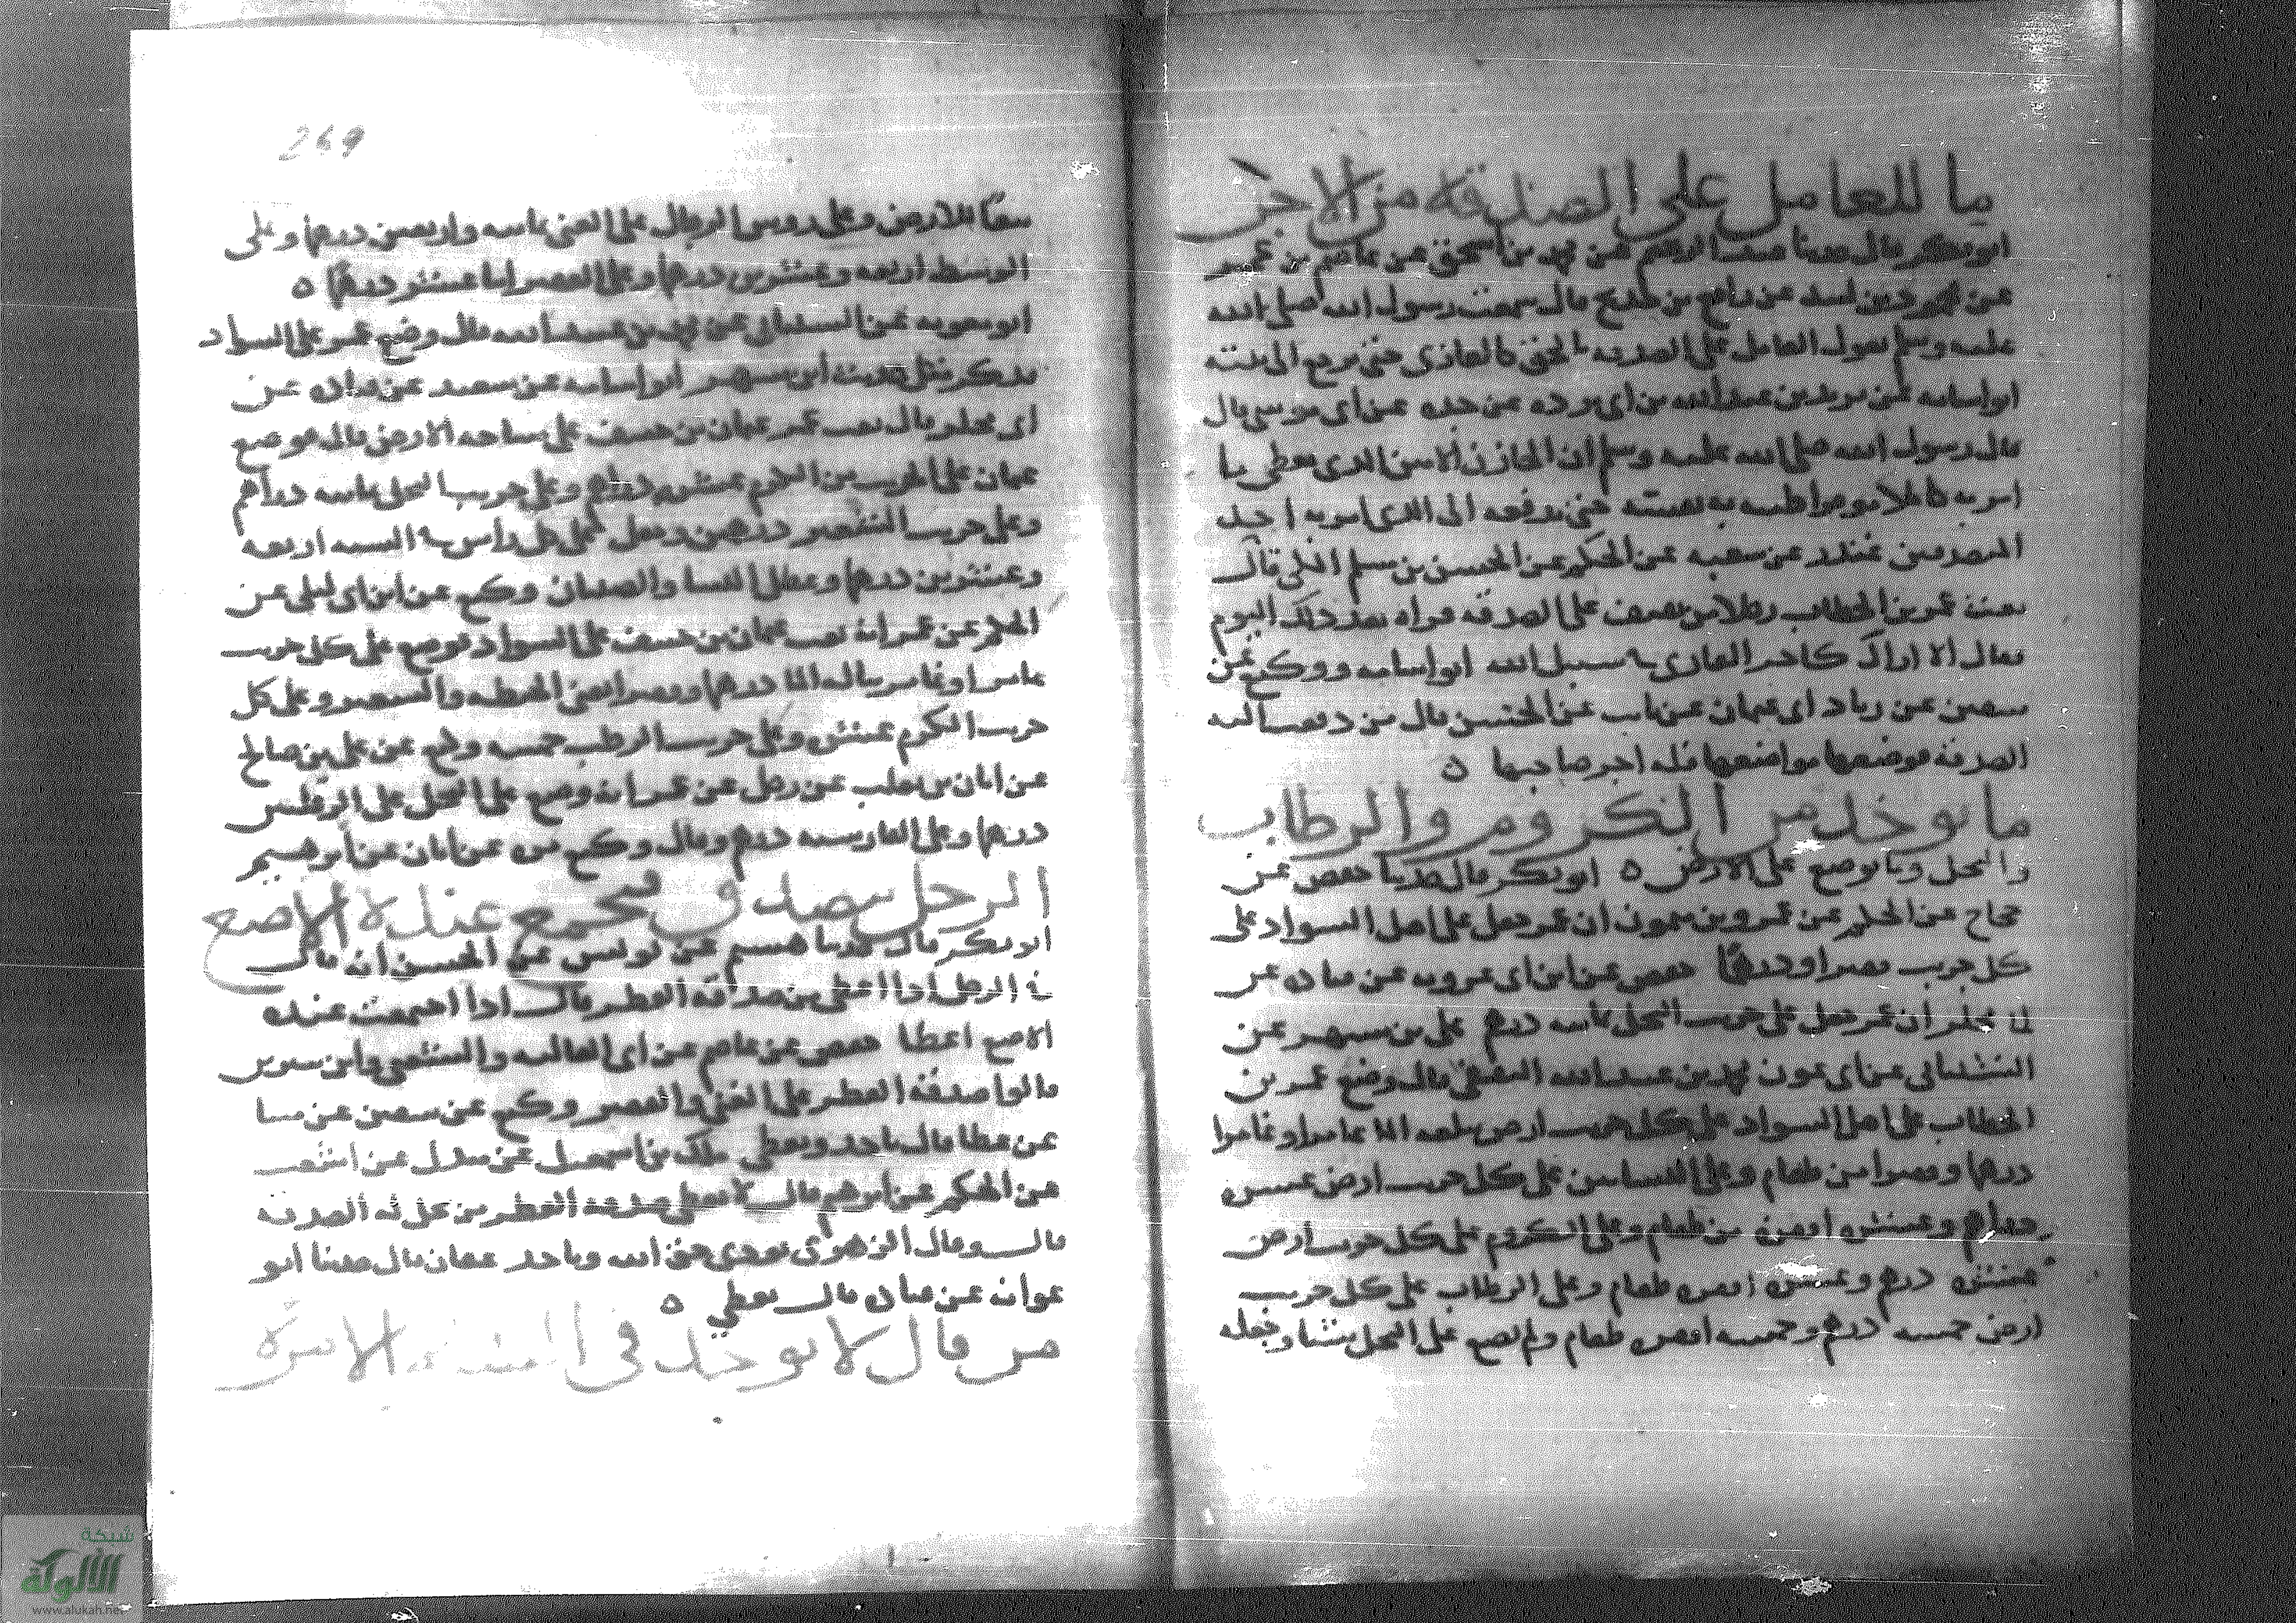 ما للعامل على الصدقة من الاجر
ابو بكر قال حدثنا عبد الرحيم عن محمد بن اسحق عن عاصم بن عمر
عن محمود بن لبيد عن رافع بن خديج قال سمعت رسول الله صلى الله
عليه وسلم يقول العامل على الصدقه بالحق كالغازى حتى يرجع الى بيته
ابو اسامه عن بريد بن عبد الله بن ابى برده عن جده عن ابى موسى قال
قال رسول الله صلى الله عليه وسلم ان الخازن الامين الذى يعطى ما
امر به كاملا موفرا طيبه به نفسه حتى يدفعه الى الذى امر به احد
المتصدقين غندر عن شعبه عن الحكم عن الحسن بن مسلم قال
بعث عمر بن الخطاب رجلا من ثقيف على الصدقه فراه بعد ذلك اليوم
فقال الا اراك كاجر الغازى فى سبيل الله ابو اسامه ووكيع عن
سفين عن زياد ابى عثمان عن عن الحسن قال من دفعت اليه
الصدقه فوضعها مواضعها فله اجر صاحبها ه
ما يوخذ من الكروم والرطاب
والنخل وما يوضع على الارض ه ابو بكر قال حدثنا حفص عن
حجاج عن الحكم عن عمرو بن ميمون ان عمر جعل على اهل السواد على
كل جريب قفيزا ودرهما حفص عن ابن ابى عروبه عن قتاده عن
ابى مجلز ان عمر جعل على جريب النخل ثمانيه درهم على بن مسهر عن
الشيبانى عن ابى عون محمد بن عبيد الله الثقفى قال وضع عمر بن
الخطاب على اهل السواد على كل جريب ارض يبلغه الما عامرا وغامرا
درهما وقفيزا من طعام وعلى البساتين على كل جريب ارض عشره
دراهم وعشره اقفزه من طعام وعلى الكروم على كل جريب ارض
عشره درهم وعشره اقفزه طعام وعلى الرطاب على كل جريب
ارض خمسه درهم وخمسه اقفزه طعام ولم يضع على النخل شيا وجعله
269
تبعا للارض وعلى روس الرجال على الغنى ثمانيه واربعين درهما وعلى
الوسط اربعه وعشرين درهما وعلى الفقير اثنا عشر درهما ه
ابو معويه عن الشيبانى عن محمد بن عبيد الله قال وضع عمر على السواد
فذكر مثل حديث ابن مسهر ابو اسامه عن سعيد عن قتاده عن
ابى مجلز قال بعث عمر عثمان بن حنيف على مساحه الارض قال فوضع
عثمان على الجريب من الكرم عشره دراهم وعلى جريب النخل ثمانيه دراهم
وعلى جريب الشعير درهمين وجعل على كل راس فى السنه اربعه
وعشرين درهما وعطل النسا والصبيان وكيع عن ابن ابى ليلى عن
الحكم عن عمر انه بعث عثمان بن حنيف على السواد فوضع على كل جريب
عامر او غامر يناله الما درهما وقفيزا يعنى الحنطه والشعير وعلى كل
جريب الكرم عشره وعلى جريب الرطب خمسه وكيع عن على بن صالح
عن ابان بن تغلب عن رجل عن عمر انه وضع على النخل على الرقلتين
درهما وعلى الفارسيه درهم وقال وكيع مره عن ابان عن ابرهيم
الرجل يصدق فيجمع عنده الاصع
ابو بكر قال حدثنا هشيم عن يونس عن الحسن انه قال
فى الرجل اذا اعطى من صدقه الفطر قال اذا اجتمعت عنده
الاصع اعطا حفص عن عاصم عن ابى العاليه والشعبى وابن سيرين
قالوا صدقه الفطر على الغنى والفقير وكيع عن سفين عن
عن عطا قال ياخذ ويعطى ملك بن اسمعيل عن مندل عن اشعث
عن الحكم عن ابرهيم قال لا يعطى صدقه الفطر من تحل له الصدقه
قال وقال الزهرى يودى حق الله وياخذ عفان قال حدثنا ابو
عوانه عن قتاده قال يعطى ه
من قال لا يوخذ فى السنه الا مره
شبكة
الألوكة
www.alukah.net